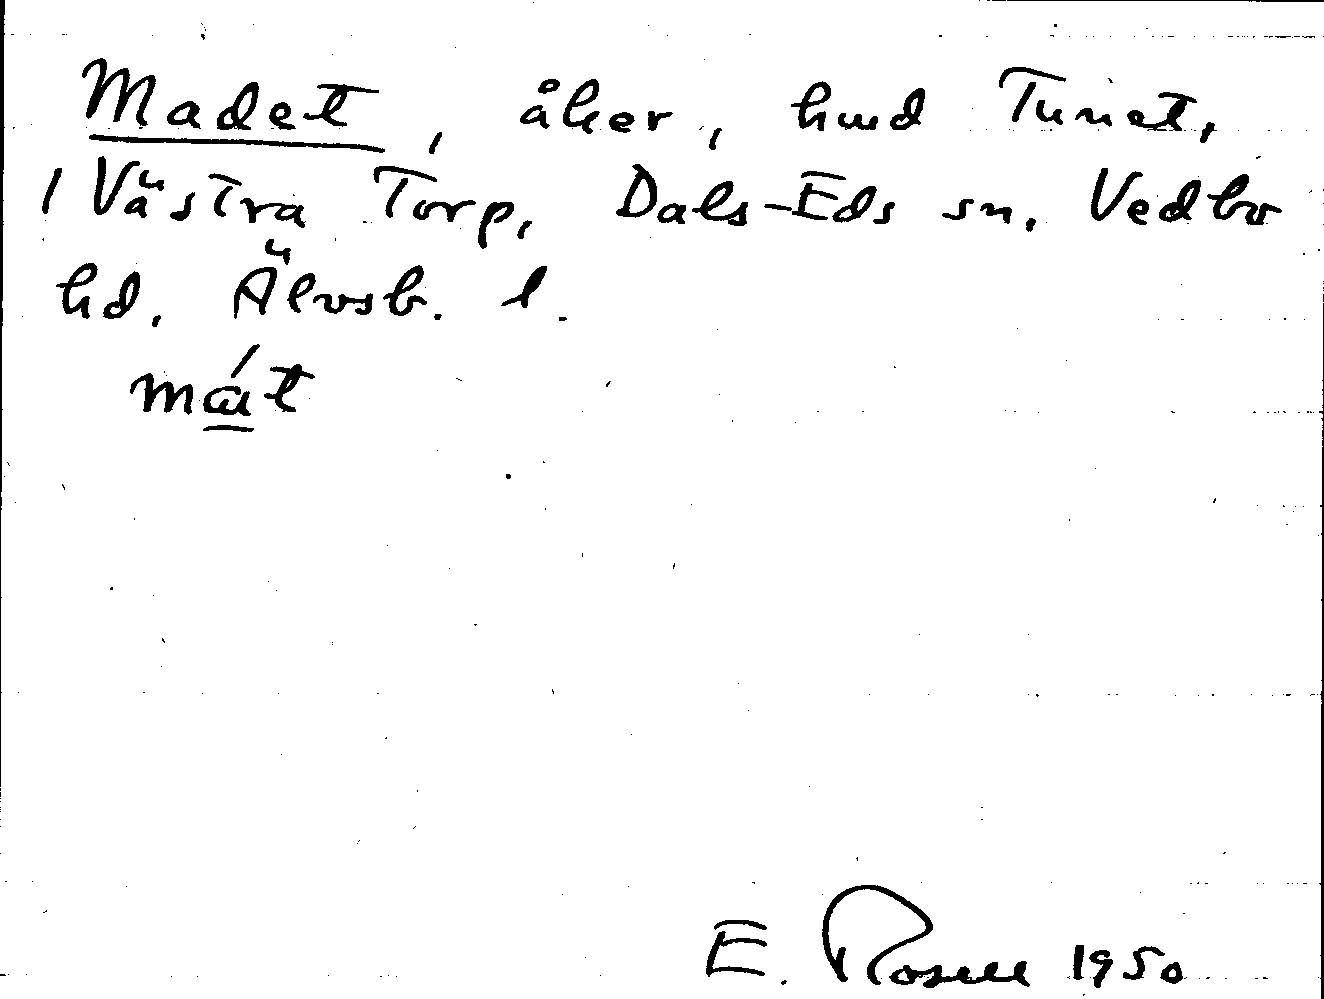 Madet, åker, hmd Tunet,
1 Västra Torp, Dals-Eds sn. Vedbo
hd. Älvsb. l.
mát
E. Rosell 1950